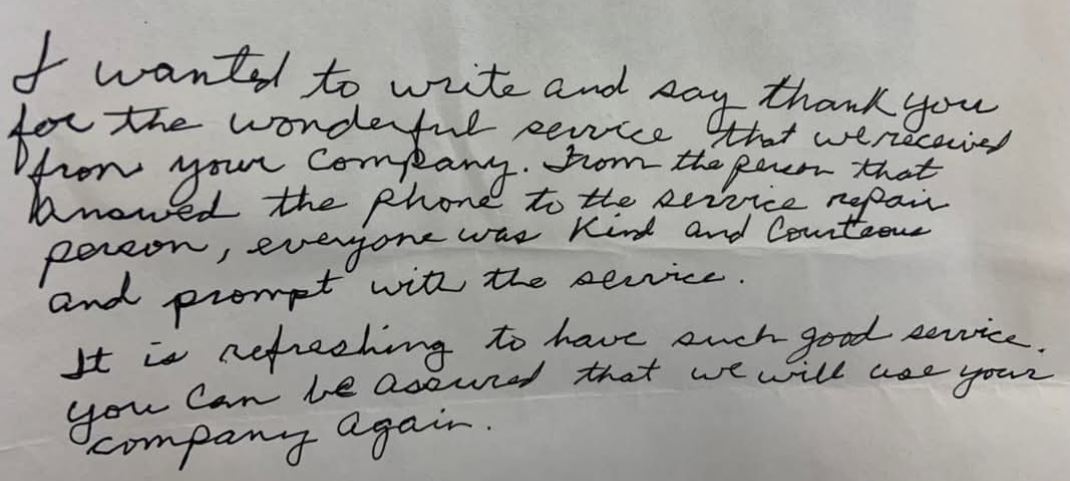 I wanted to write and say thank you
for the wonderful service that we received
from your company. From the person that
answed the phone to the service repair
person, everyone was kind and courteous
and prompt with the service.
It is refreshing to have such good service.
you can be assured that we will use your
company again.